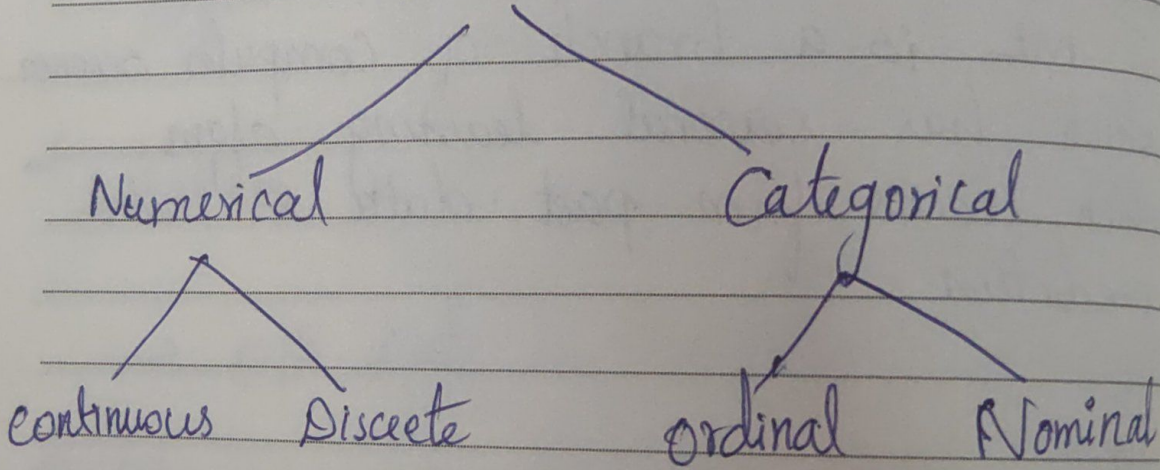 Numerical Categorical
continuous Discrete ordinal Nominal